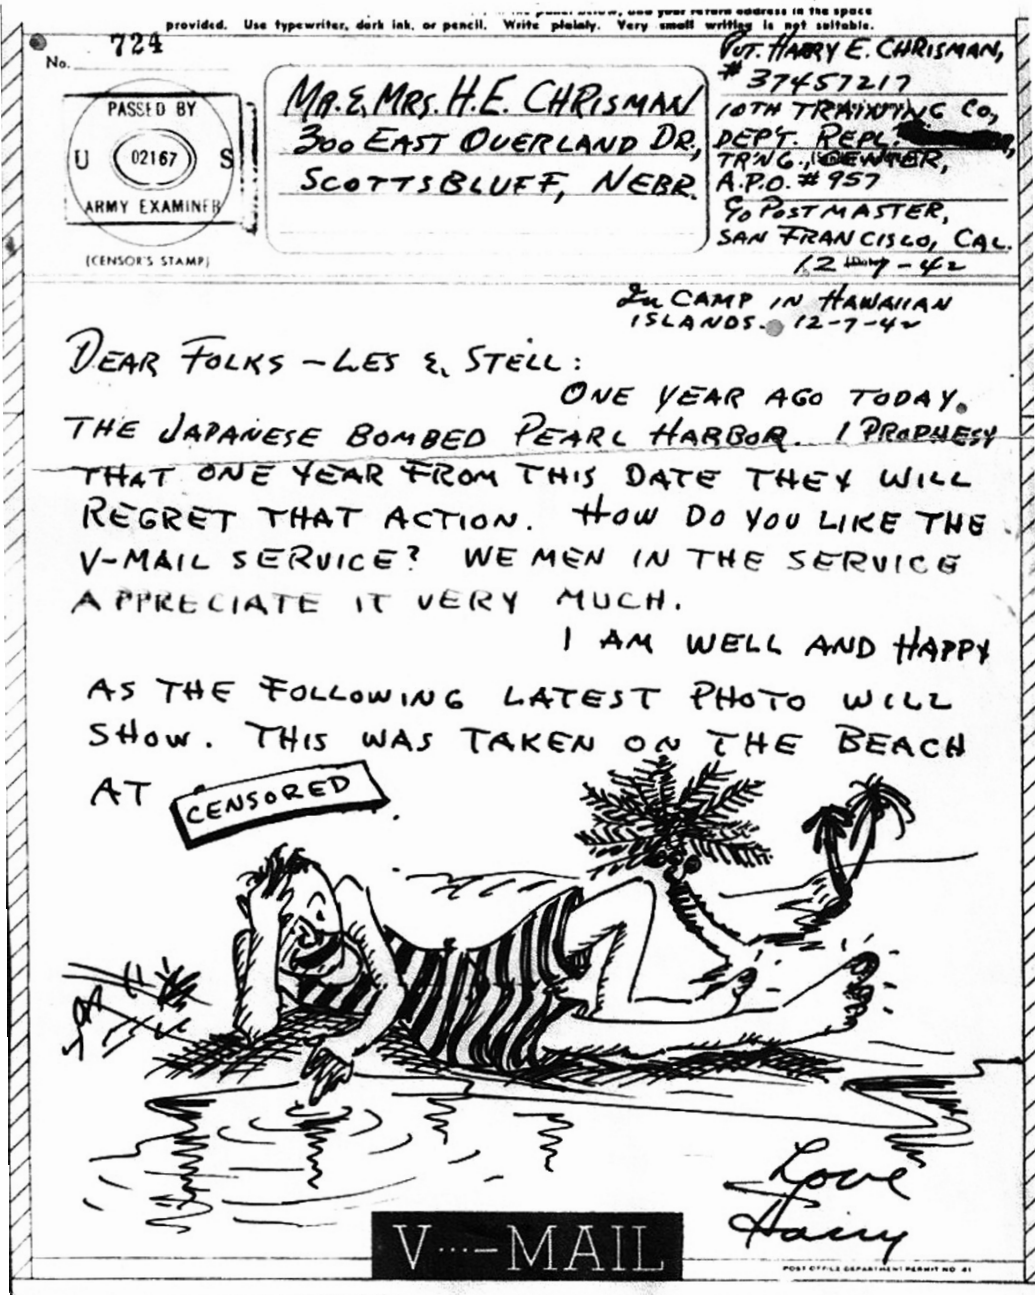 the panel below, and your return address in the space
provided. Use typewriter, dark ink, or pencil. Write plainly. Very small writing is not suitable.
No. 724
PASSED BY
U 02167 S
ARMY EXAMINER
(CENSOR'S STAMP)
MR. & MRS. H.E. CHRISMAN
300 EAST OVERLAND DR.,
SCOTTSBLUFF, NEBR.
PVT. HARRY E. CHRISMAN,
# 37457217
10TH TRAINING CO.,
DEP'T. REPL.
TR'NG. CENTER,
A.P.O. # 957
c/o POSTMASTER,
SAN FRANCISCO, CAL.
12-7-42
In CAMP IN HAWAIIAN
ISLANDS. 12-7-42
DEAR FOLKS - LES & STELL:
ONE YEAR AGO TODAY.
THE JAPANESE BOMBED PEARL HARBOR. I PROPHESY
THAT ONE YEAR FROM THIS DATE THEY WILL
REGRET THAT ACTION. HOW DO YOU LIKE THE
V-MAIL SERVICE? WE MEN IN THE SERVICE
APPRECIATE IT VERY MUCH.
I AM WELL AND HAPPY
AS THE FOLLOWING LATEST PHOTO WILL
SHOW. THIS WAS TAKEN ON THE BEACH
AT CENSORED.
Love
Harry
V···-MAIL
POST OFFICE DEPARTMENT PERMIT NO. 41